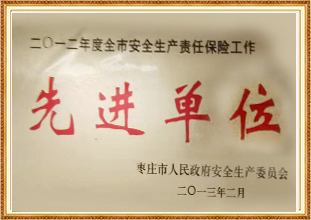 二〇一二年度全市安全生产责任保险工作
先进单位
枣庄市人民政府安全生产委员会
二〇一三年二月